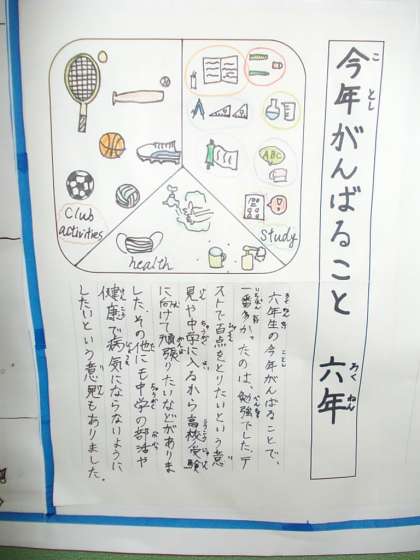 今年がんばること 六年
こ とし
ろく ねん
ABC
Club
activities
Study
health
六年生の今年がんばることで、
一番多かったのは、勉強でした。テ
ストで百点をとりたいという意
見や中学に入るから高校受験
に向けて頑張りたいなどがありま
した。その他にも中学の部活や
健康で病気にならないように
したいという意見もありました。